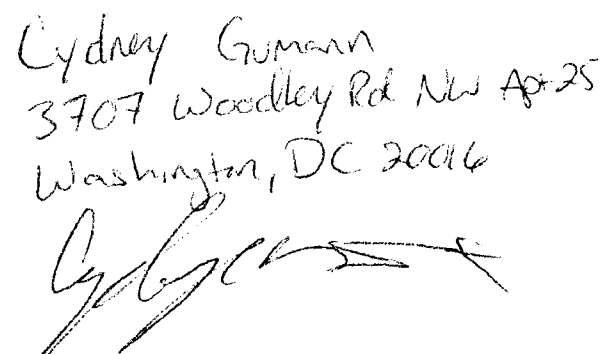 Cydney Gumann
3707 Woodley Rd NW Apt 25
Washington, DC 20016